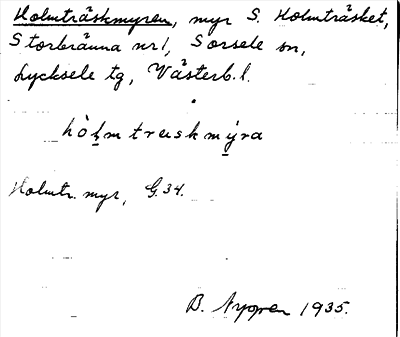 Holmträskmyren, myr S. Holmträsket,
Storbränna nr 1, Sorsele sn,
Lycksele tg, Västerb. l.
hòḷmtræskmýra
Holmtr. myr, G.34.
B. Nygren 1935.